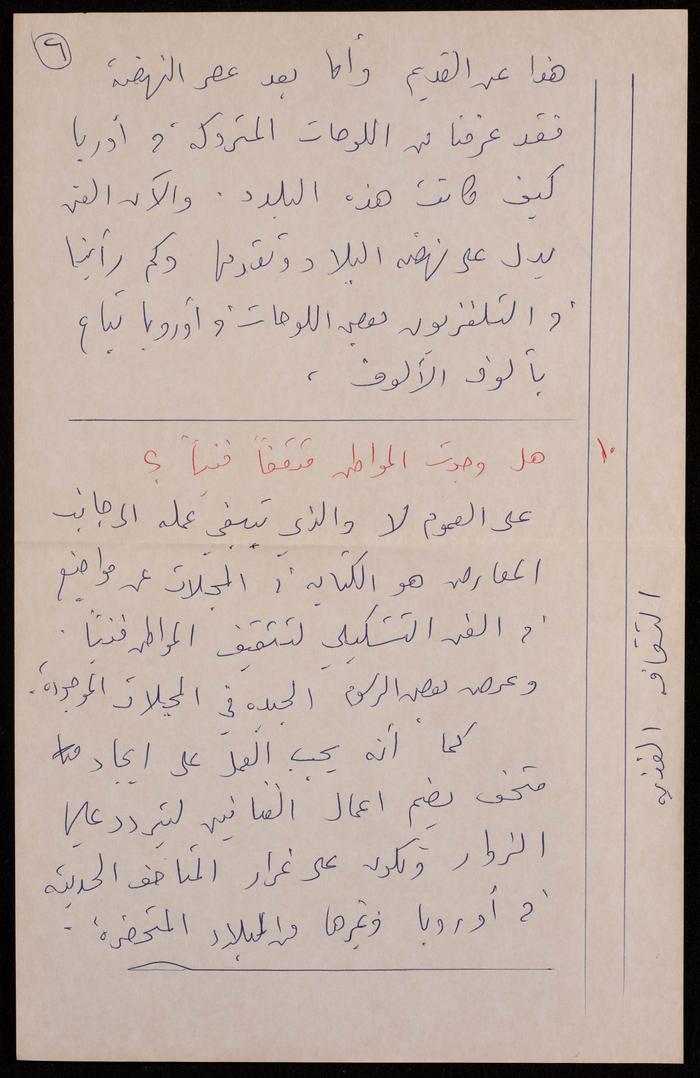 ٩
هذا عن القديم وأما بعد عصر النهضة
فقد عرفنا من اللوحات المتروكة في أوربا
كيف كانت هذه البلاد . والآن الفن
يدل على نهضة البلاد وتقدمها وكم رأينا
في التلفزيون بعض اللوحات في أوروبا تباع
بألوف الألوف ،
١٠ هل وجدت المواطن مثقفاً فنياً ؟
على العموم لا والذي ينبغي عمله الى جانب
المعارض هو الكتابه في المجلات عن مواضيع
في الفن التشكيلي لتثقيف المواطن فنياً .
وعرض بعض الرسوم الجيده في المجلات الموجودة .
كما أنه يجب العمل على ايجاد
متحف يضم اعمال الفنانين ليتردد عليها
الزوار وتكون على غرار المتاحف الحديثه
في أوروبا وغيرها من البلاد المتحضرة .
الثقافه الفنيه